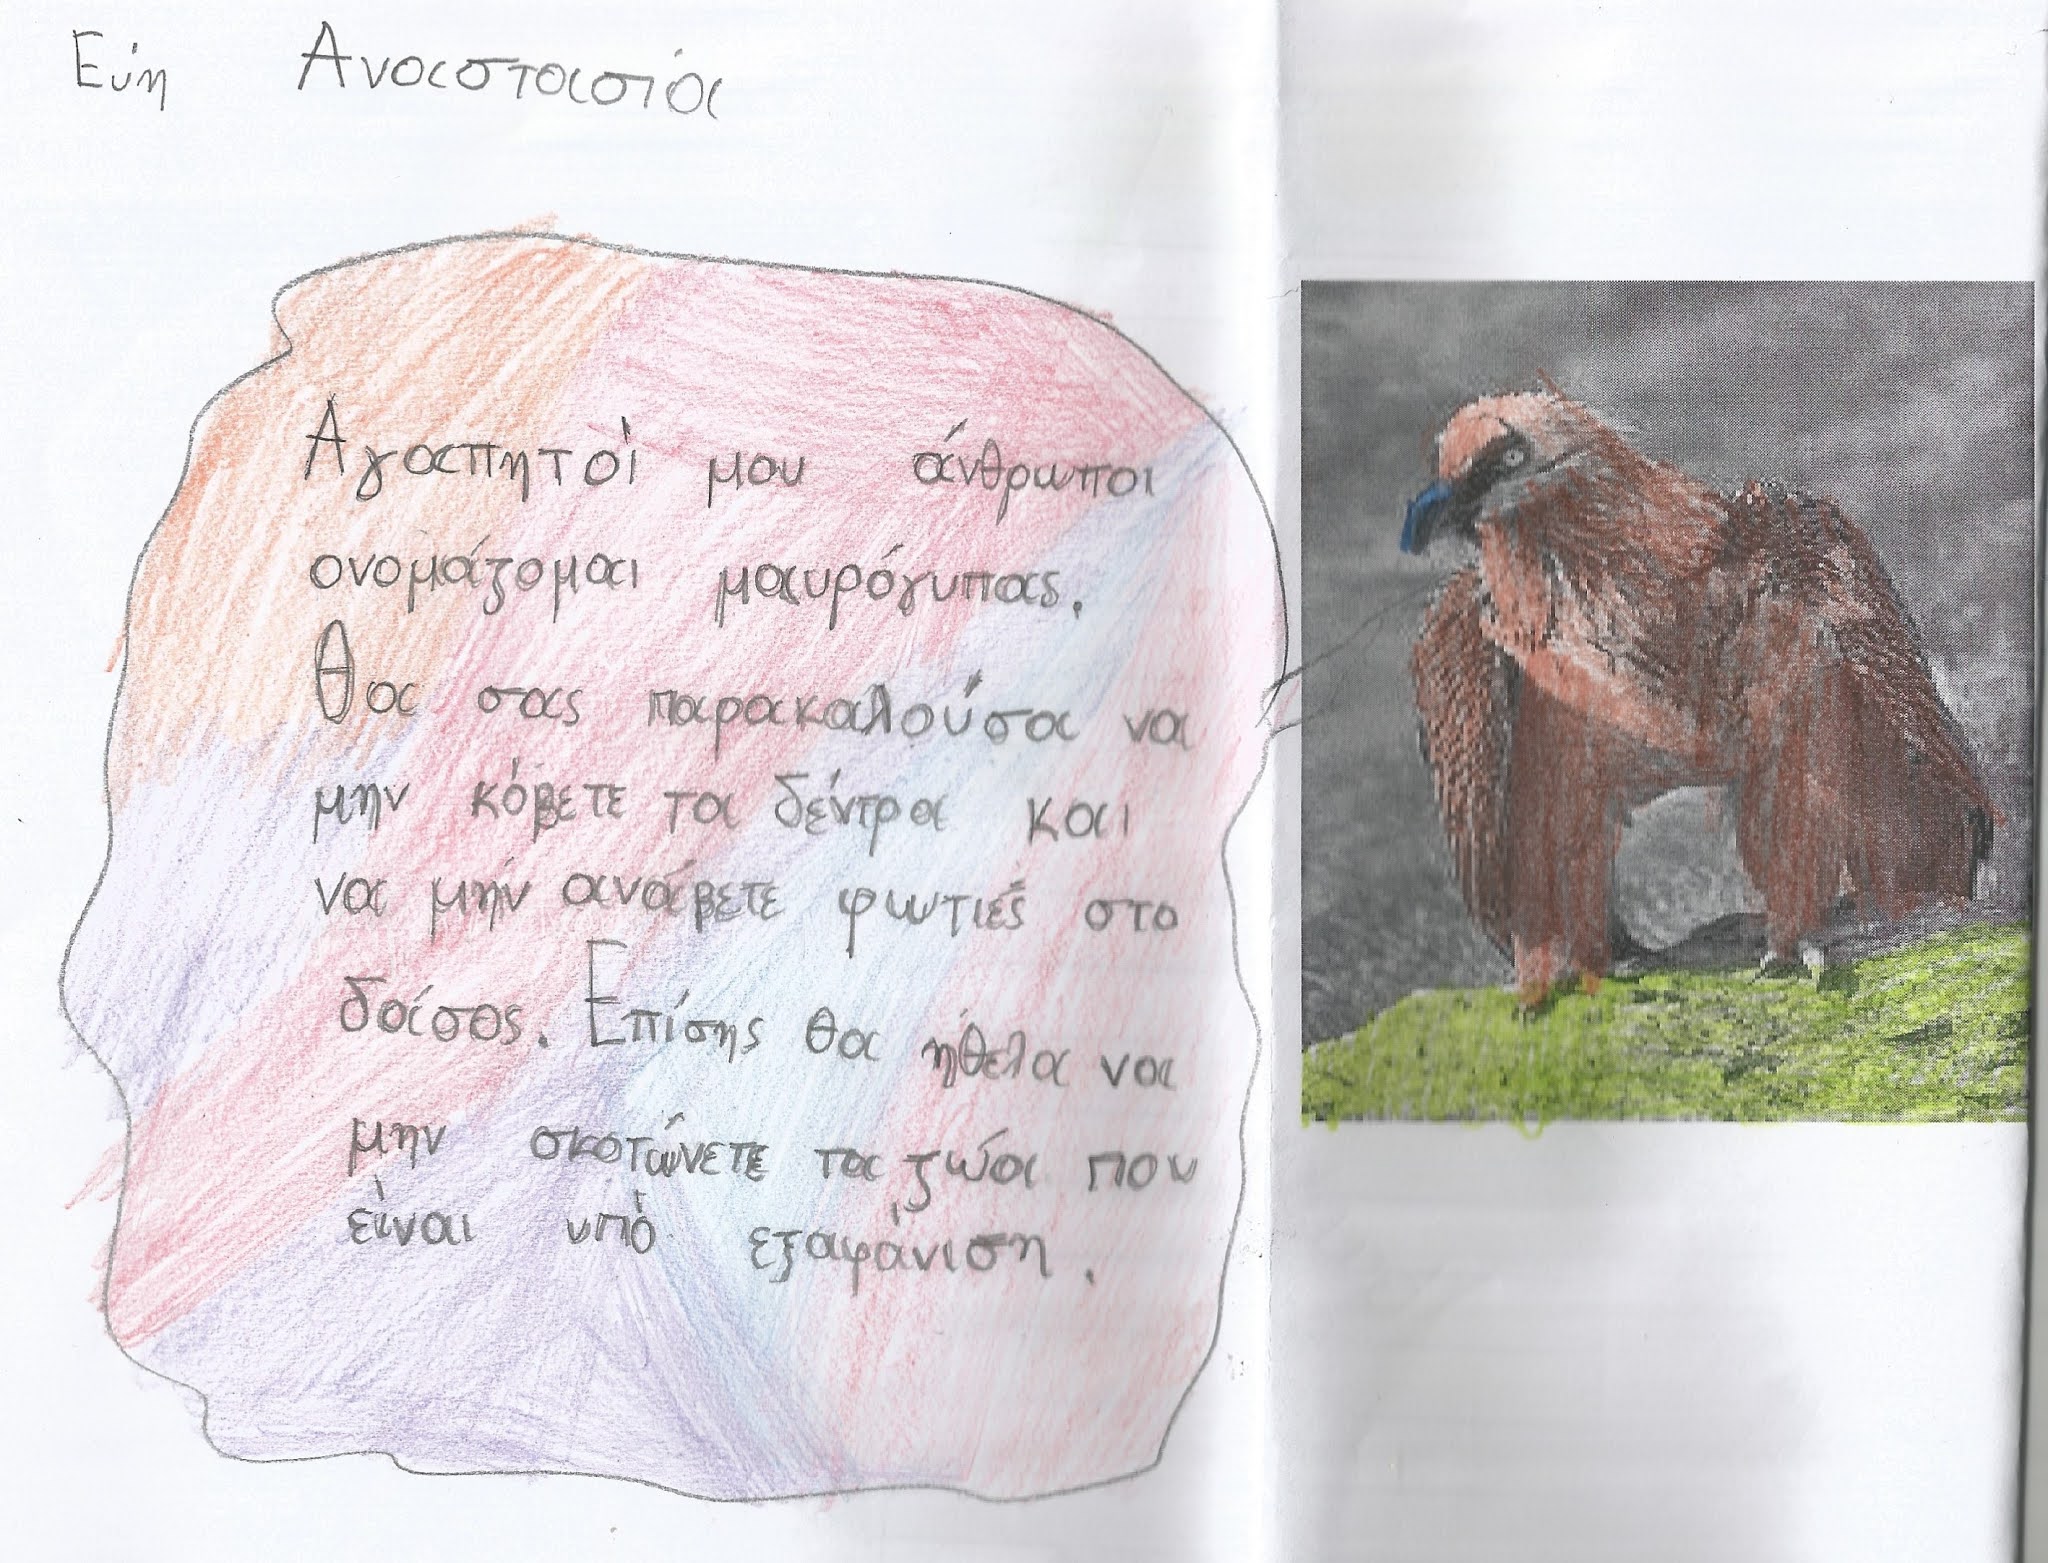 Εύη Αναστασία
Αγαπητοί μου άνθρωποι
ονομάζομαι μαυρόγυπας.
Θα σας παρακαλούσα να
μην κόβετε τα δέντρα και
να μήν ανάβετε φωτιές στο
δάσος. Επίσης θα ήθελα να
μην σκοτώνετε τα ζώα που
είναι υπό εξαφάνιση.